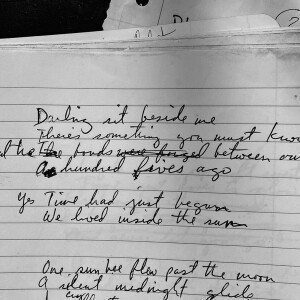 Darling sit beside me
There's something you must know
the bonds were forged between our
A hundred lives ago
Yes Time had just begun
We lived inside the sun
One sun we flew past the moon
A silent midnight glide